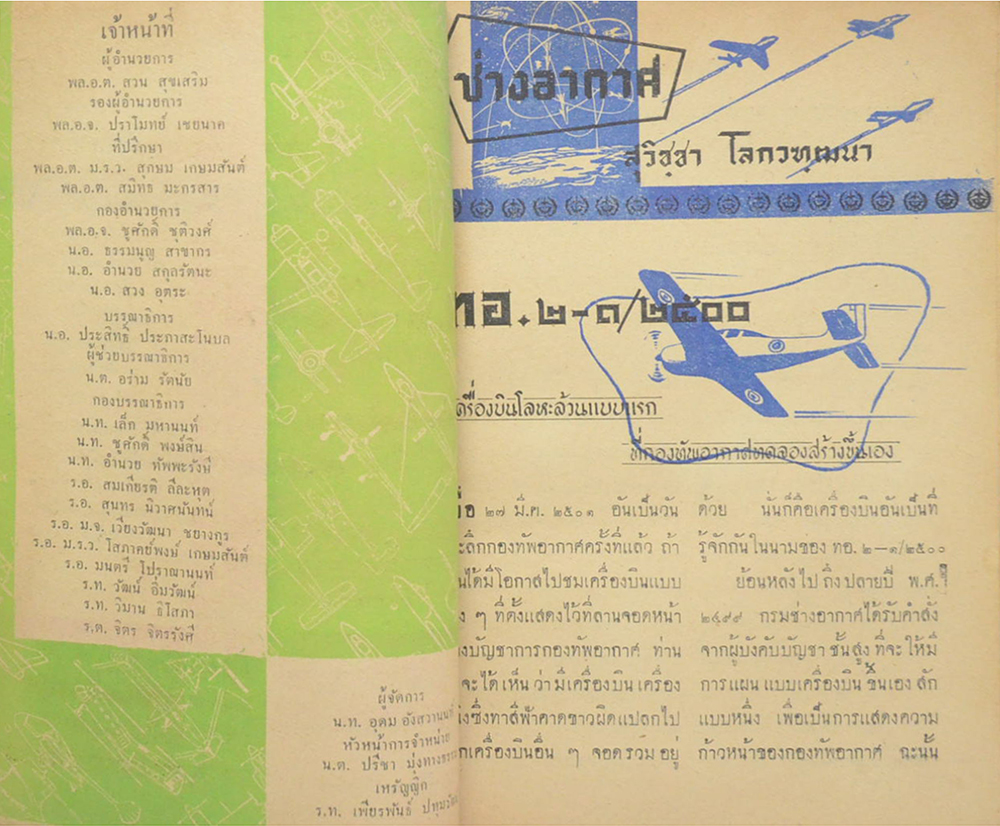 เจ้าหน้าที่
ผู้อำนวยการ
พล.อ.ต. สวน สุขเสริม
รองผู้อำนวยการ
พล.อ.จ. ปราโมทย์ เชยนาค
ที่ปรึกษา
พล.อ.ต. ม.ร.ว. สุกษม เกษมสันต์
พล.อ.ต. สมิทธ มะกรสาร
กองอำนวยการ
พล.อ.จ. ชูศักดิ์ ชุติวงศ์
น.อ. ธรรมนูญ สาขากร
น.อ. อำนวย สกุลรัตนะ
น.อ. สวง อุตระ
บรรณาธิการ
น.อ. ประสิทธิ์ ประภาสะโนบล
ผู้ช่วยบรรณาธิการ
น.ต. อร่าม รัตนัย
กองบรรณาธิการ
น.ท. เล็ก มหานนท์
น.ท. ชูศักดิ์ พงษ์สิน
น.ท. อำนวย ทัพพะรังษี
ร.อ. สมเกียรติ ลีละหุต
ร.อ. สุนทร นิวาศนันทน์
ร.อ. ม.จ. เวียงวัฒนา ชยางกูร
ร.อ. ม.ร.ว. โสภาคย์พงษ์ เกษมสันต์
ร.อ. มนตรี โปราณานนท์
ร.ท. วัฒน์ อิ่มวัฒน์
ร.ท. วิมาน ธิโสภา
ร.ต. จิตร จิตรรังศี
ผู้จัดการ
น.ท. อุดม อังสวานนท์
หัวหน้าการจำหน่าย
น.ต. ปรีชา มุ่งทางธรรม
เหรัญญิก
ร.ท. เพียรพันธ์
ช่างอากาศ
สุวิชฺชา โลกวฑฺฒนา
ทอ. ๒-๑/๒๕๐๐
ครื่องบินโลหะล้วนแบบแรก
ที่กองทัพอากาศทดลองสร้างขึ้นเอง
มื่อ ๒๗ มี.ค. ๒๕๐๑ อันเป็นวัน
ะลึกกองทัพอากาศครั้งที่แล้ว ถ้า
นได้มีโอกาสไปชมเครื่องบินแบบ
ง ๆ ที่ตั้งแสดงไว้ที่ลานจอดหน้า
งบัญชาการกองทัพอากาศ ท่าน
จะได้เห็นว่ามีเครื่องบินเครื่อง
่งซึ่งทาสีฟ้าคาดขาวผิดแปลกไป
กเครื่องบินอื่น ๆ จอดรวมอยู่
ด้วย นั่นก็คือเครื่องบินอันเป็นที่
รู้จักกันในนามของ ทอ. ๒–๑/๒๕๐๐
ย้อนหลังไปถึงปลายปี พ.ศ.
๒๔๙๙ กรมช่างอากาศได้รับคำสั่ง
จากผู้บังคับบัญชาชั้นสูง ที่จะให้มี
การแผนแบบเครื่องบินขึ้นเองสัก
แบบหนึ่ง เพื่อเป็นการแสดงความ
ก้าวหน้าของกองทัพอากาศ ฉะนั้น